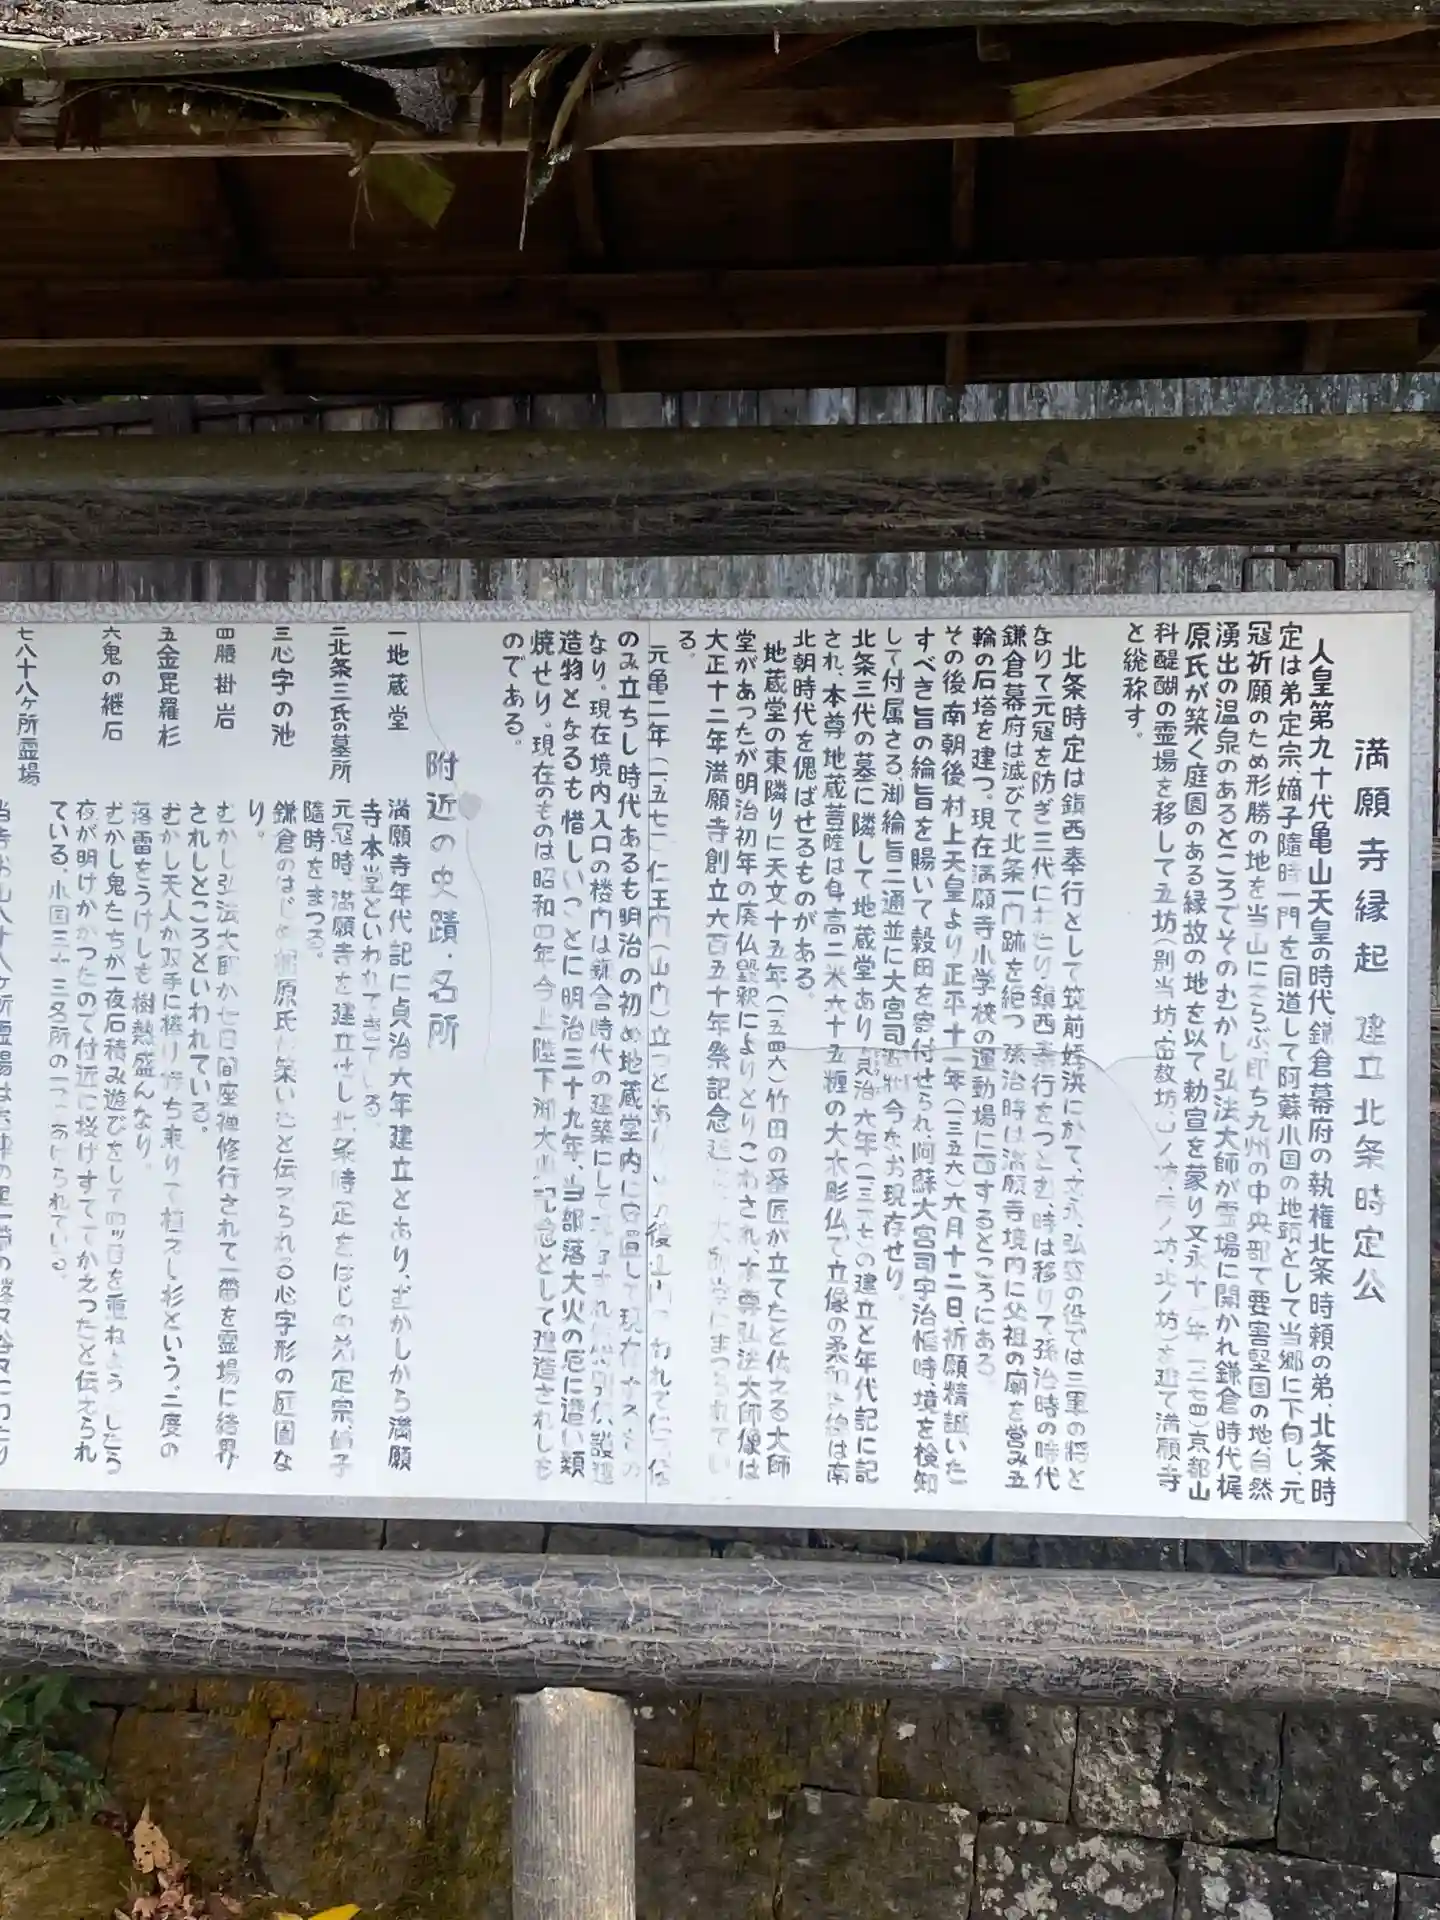 満願寺縁起 建立北条時定公
人皇第九十代亀山天皇の時代鎌倉幕府の執権北条時頼の弟、北条時
定は弟定宗、嫡子随時一門を同道して阿蘇小国の地頭として当郷に下向し、元
冦祈願のため形勝の地を当山にえらぶ、即ち九州の中央部で要害堅固の地、自然
湧出の温泉のあるところでそのむかし弘法大師が霊場に開かれ鎌倉時代梶
原氏が築く庭園のある縁故の地を以て勅宣を蒙り又永十一年(一二七四)京都山
科醍醐の霊場を移して五坊(別当坊、宙教坊、山ノ坊、西ノ坊、北ノ坊)を建て満願寺
と総称す。
北条時定は鎮西奉行として筑前姪浜にかて、文永、弘安の役では三軍の将と
なりて元冦を防ぎ三代にわたり、鎮西奉行をつとむ、時は移りて孫治時の時代
鎌倉幕府は滅びて北条一門跡を絶つ 孫治時は満願寺境内に父祖の廟を営み五
輪の石塔を建つ、現在満願寺小学校の運動場に面するところにある。
その後南朝後村上天皇より正平十一年(一三五六)六月十二日祈願精誠いた
すべき旨の綸旨を賜いて穀田を寄付せられ、阿蘇大宮司宇治惟時、境を検知
して付属さる、御綸旨二通並に大宮司 今なお現存せり。
北条三代の墓に隣して地蔵堂あり貞治六年(一三六七)の建立と年代記に記
され、本尊地蔵菩薩は身高二米六十五糎の大木彫仏で立像の柔和な線は南
北朝時代を偲ばせるものがある。
地蔵堂の東隣りに天文十五年(一五四六)竹田の番匠が立てたと伝える大師
堂があったが明治初年の廃仏毀釈によりとりこわされ、本尊弘法大師像は
大正十二年満願寺創立六百五十年祭記念 大師堂にまつられてい
る。
元亀二年(一五七一)仁王門(山門)立つとあり 後
のみ立ちし時代あるも明治の初め地蔵堂内に安置して現存す
なり。現在境内入口の楼門は 時代の建築にして
造物となるも惜しいことに明治三十九年、当部落大火の厄に遭い類
焼せり。現在のものは昭和四年今上陛下 記念として建造されしも
のである。
附近の史蹟・名所
一地蔵堂 満願寺年代記に貞治六年建立とあり、むかしから満願
寺本堂といわれてきている。
二北条三氏の墓所 元冦時、満願寺を建立せし北条時定をはじめ弟定宗、嫡子
随時をまつる。
三心字の池 鎌倉のはじめ梶原氏が築いたと伝えられる心字形の庭園な
り。
四腰掛岩 むかし弘法大師が七日間座禅修行されて一帯を霊場に結界
されしところといわれている。
五金毘羅杉 むかし天人が双手に捧り持ち来りて植えし杉という、二度の
落雷をうけしも樹熱盛んなり。
六鬼の継石 むかし鬼たちが一夜石積み遊びをして四ッ目を重ねようとしたら
夜が明けかかつたので付近に投げすててかえつたと伝えられ
ている、小国三十三名所の一にあげられている。
七八十八ヶ所霊場